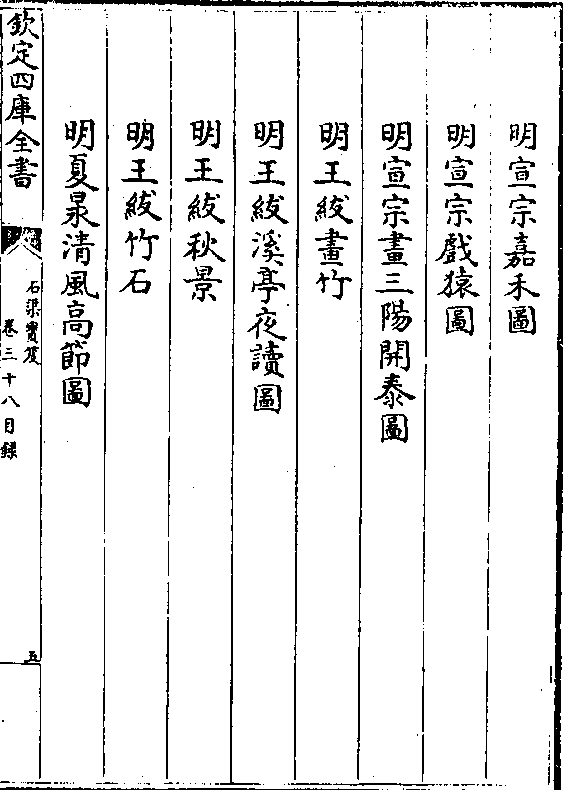 明宣宗嘉禾圖
明宣宗戲猿圖
明宣宗畫三陽開泰圖
明王紱畫竹
明王紱溪亭夜讀圖
明王紱秋景
明王紱竹石
明夏㫤清風高節圖
欽定四庫全書
石渠寶笈
卷三十八目錄
五